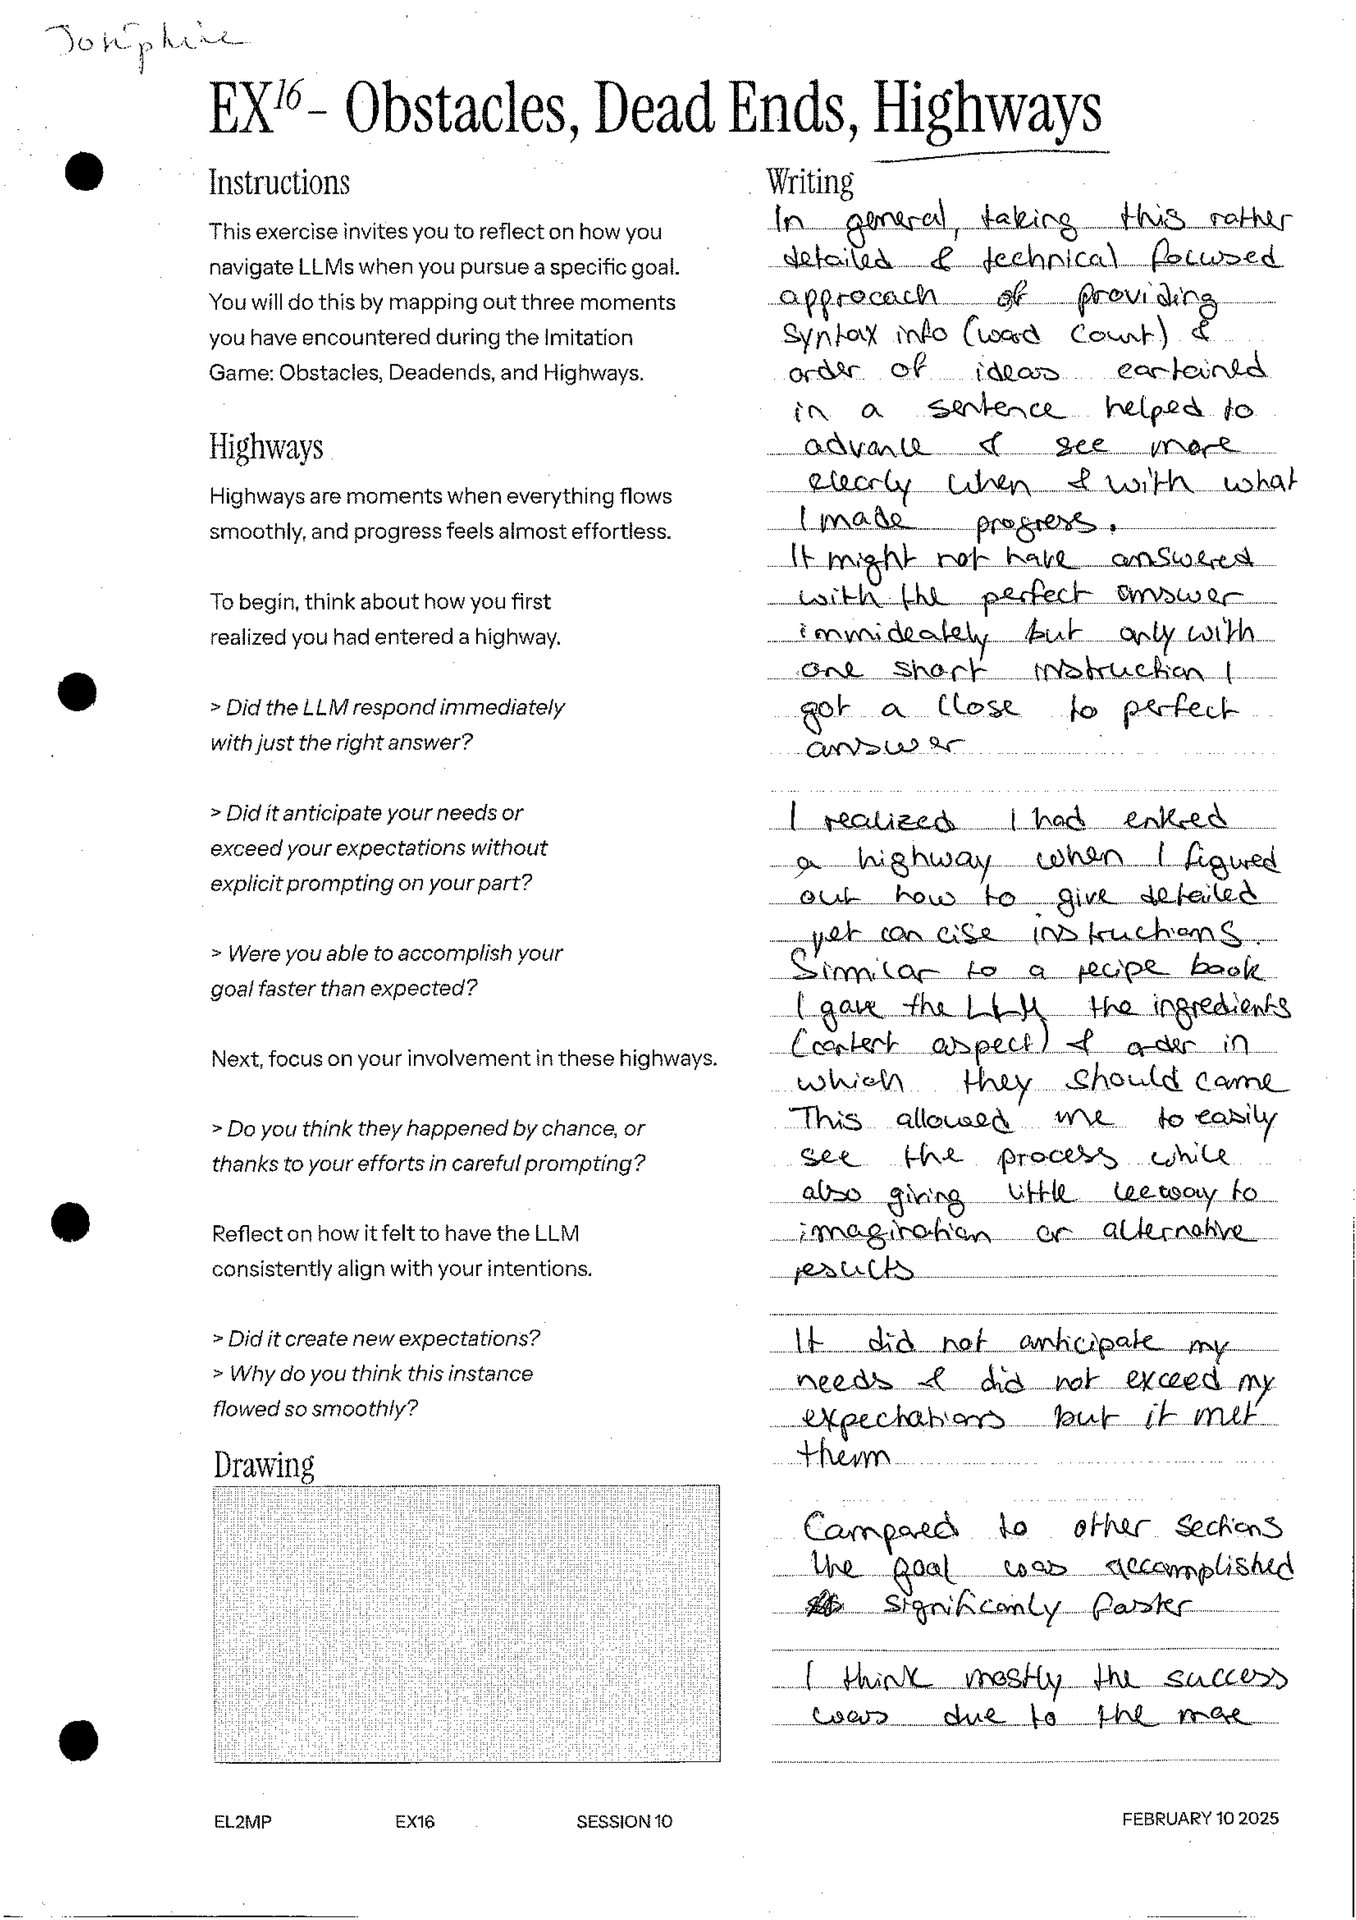 Joséphine
EX16 – Obstacles, Dead Ends, Highways
Instructions
This exercise invites you to reflect on how you
navigate LLMs when you pursue a specific goal.
You will do this by mapping out three moments
you have encountered during the Imitation
Game: Obstacles, Deadends, and Highways.
Highways
Highways are moments when everything flows
smoothly, and progress feels almost effortless.
To begin, think about how you first
realized you had entered a highway.
> Did the LLM respond immediately
with just the right answer?
> Did it anticipate your needs or
exceed your expectations without
explicit prompting on your part?
> Were you able to accomplish your
goal faster than expected?
Next, focus on your involvement in these highways.
> Do you think they happened by chance, or
thanks to your efforts in careful prompting?
Reflect on how it felt to have the LLM
consistently align with your intentions.
> Did it create new expectations?
> Why do you think this instance
flowed so smoothly?
Drawing
Writing
In general, taking this rather
detailed & technical focused
approcach of providing
syntax info (word count) &
order of ideas contained
in a sentence helped to
advance & see more
clearly when & with what
I made progress.
It might not have answered
with the perfect answer
immideately but only with
one short instruction I
got a close to perfect
answer
I realized I had entered
a highway when I figured
out how to give detailed
yet concise instructions.
Similar to a recipe book
I gave the LLM the ingredients
(content aspect) & order in
which they should come
This allowed me to easily
see the process while
also giving little leeway to
imagination or alternative
results
It did not anticipate my
needs & did not exceed my
expectations but it met
them
Compared to other sections
the goal was accomplished
significantly faster
I think mostly the success
was due to the more
EL2MP EX16 SESSION 10 FEBRUARY 10 2025